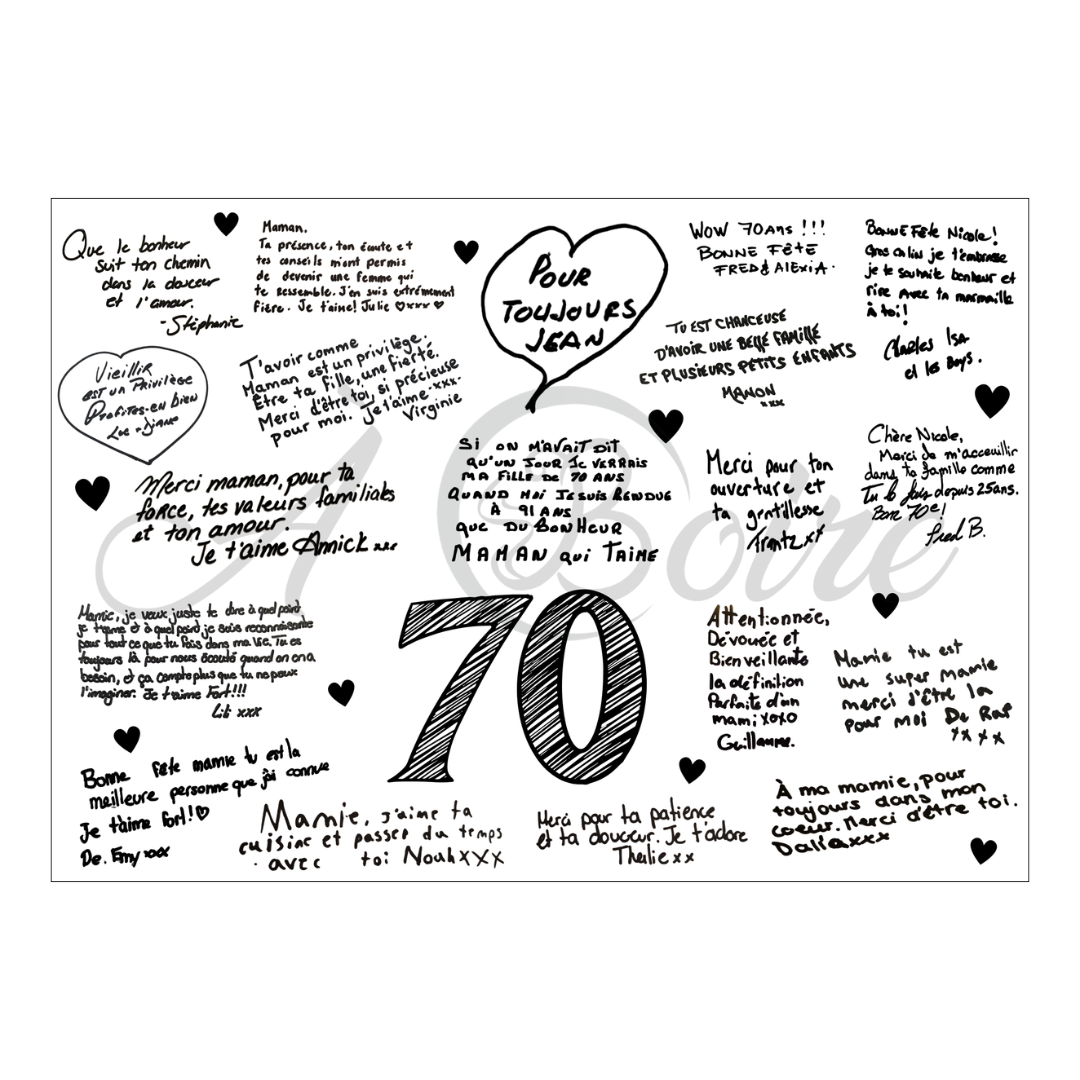 Que le bonheur
suit ton chemin
dans la douceur
et l'amour.
-Stéphanie
Maman,
Ta présence, ton écoute et
tes conseils m'ont permis
de devenir une femme qui
te ressemble. J'en suis extrémement
fière. Je t'aime! Julie ♡xxx ♡
POUR
TOUJOURS
JEAN
WOW 70ANS !!!
BONNE FÊTE
FRED & ALEXIA.
BONNE Fête Nicole!
Gros calin je t'embrasse
je te souhaite bonheur et
rire avec ta marmaille
à toi!
Charles Isa
et les boys.
Vieillir
est un Privilège
Profites-en bien
Luc + Diane
T'avoir comme
Maman est un privilège.
Être ta fille, une fierté.
Merci d'être toi, si précieuse
pour moi. Je t'aime -xxx-
Virginie
TU EST CHANCEUSE
D'AVOIR UNE BELLE FAMILLE
ET PLUSIEURS PETITS ENFANTS
MANON
xxx
Merci maman, pour ta
force, tes valeurs familiales
et ton amour.
Je t'aime Annick xxx
SI ON M'AVAIT DIT
QU'UN JOUR JE VERRAIS
MA FILLE DE 70 ANS
QUAND MOI JE SUIS RENDUE
À 91 ANS
QUE DU BONHEUR
MAMAN qui T'AIME
Merci pour ton
ouverture et
ta gentillesse
Frantz xx
Chère Nicole,
Merci de m'acceuillir
dans ta famille comme
Tu le fais depuis 25ans.
Bone 70e!
Fred B.
A Boire
Mamie, je veux juste te dire à quel point
je t'aime et à quel point je suis reconnaissante
pour tout ce que tu fais dans ma vie. Tu es
toujours là pour nous écouté quand on en a
besoin, et ça compte plus que tu ne peux
l'imaginer. Je t'aime Fort!!!
Lili xxx
70
Attentionnée,
Dévouée et
Bienveillante
la définition
Parfaite d'un
mami xoxo
Guillaume.
Mamie tu est
une super mamie
merci d'être la
pour moi De Raf
xxxx
Bonne fête mamie tu est la
meilleure personne que j'ai connue
Je t'aime fort! ♡
De. Emy xxx
Mamie, j'aime ta
cuisine et passer du temps
avec toi Noah XXX
Merci pour ta patience
et ta douceur. Je t'adore
Thalie xx
À ma mamie, pour
toujours dans mon
coeur. Merci d'être toi.
Dalia xxx